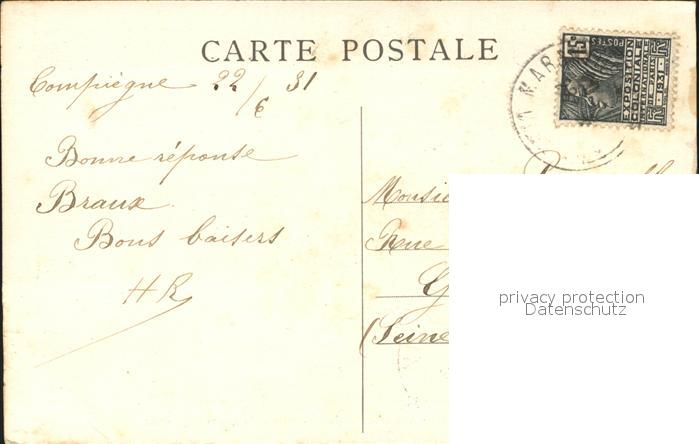 CARTE POSTALE
Compiègne 22/6 31
Bonne réponse
Braux.
Bons baisers
HR
15c
POSTES
EXPOSITION
COLONIALE
INTERNATIONALE
DE PARIS
1931
Rue
(Seine
privacy protection
Datenschutz